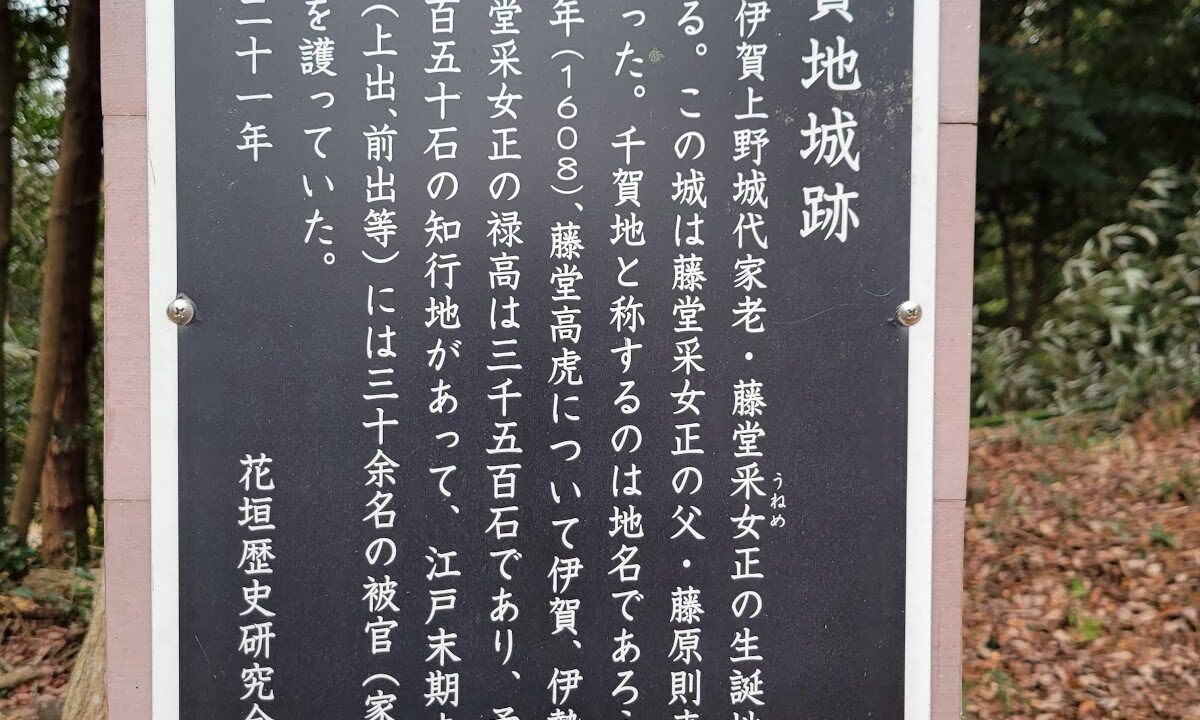 賀地城跡
伊賀上野城代家老・藤堂采女正の生誕地
うねめ
る。この城は藤堂采女正の父・藤原則
った。千賀地と称するのは地名であろ
年(1608)、藤堂高虎について伊賀、伊勢
堂采女正の禄高は三千五百石であり、予
百五十石の知行地があって、江戸末期
(上出、前出等)には三十余名の被官(家
を護っていた。
二十一年
花垣歴史研究会